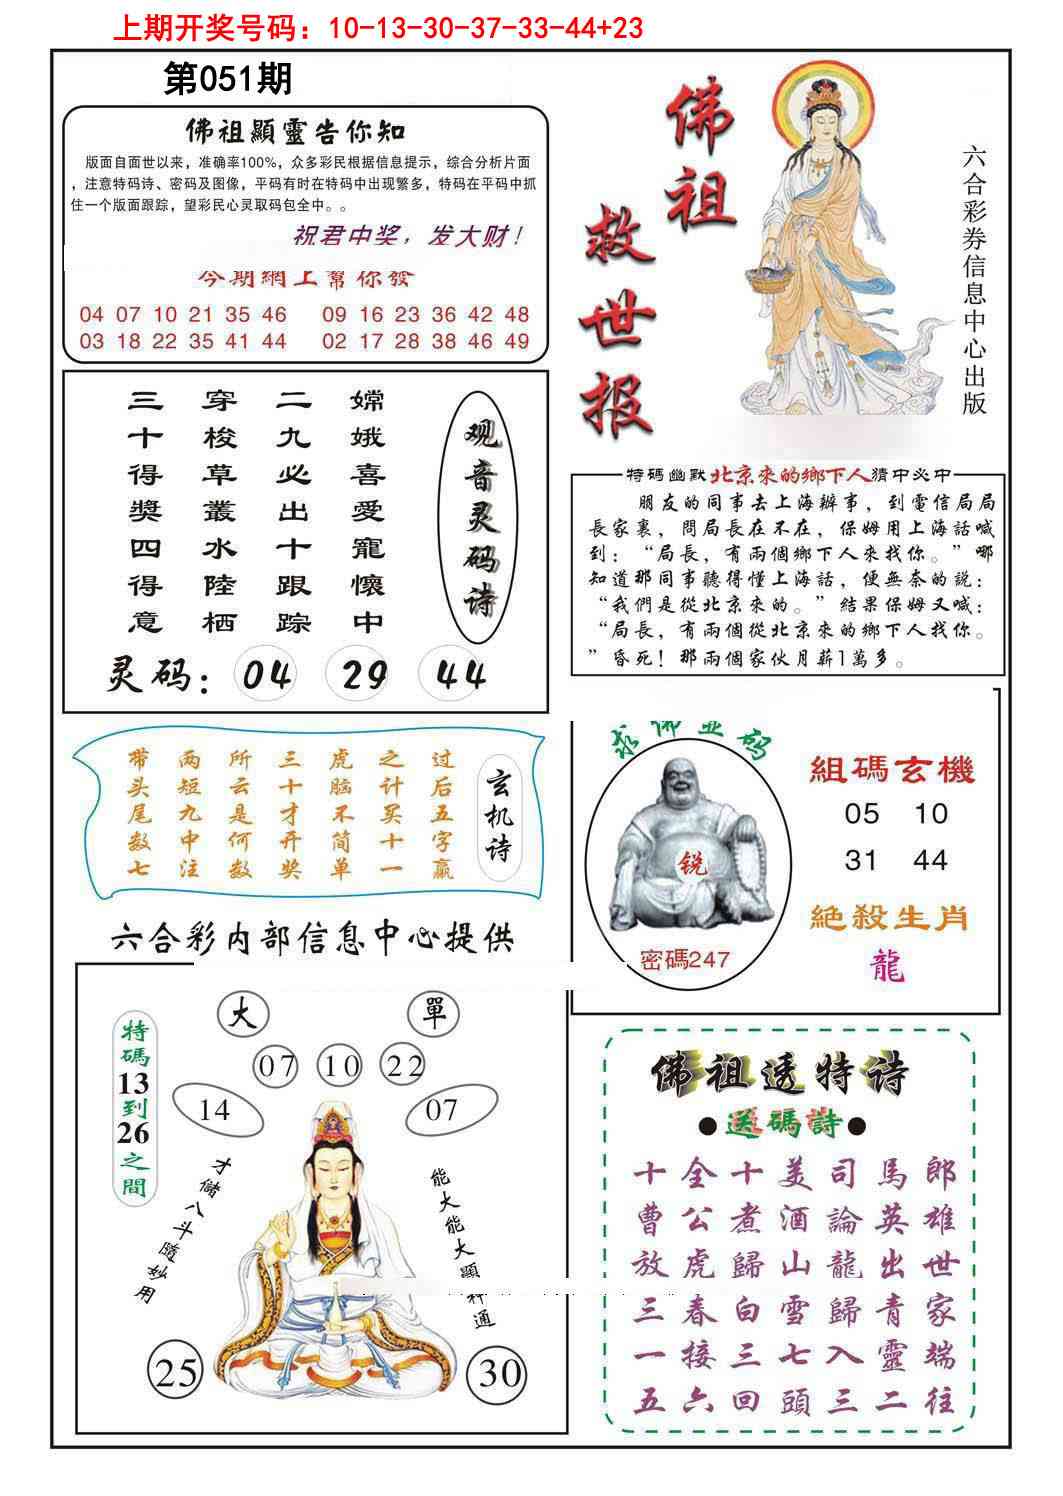 上期开奖号码：10-13-30-37-33-44+23
第051期
佛祖顯靈告你知
版面自面世以来，准确率100%，众多彩民根据信息提示，综合分析片面
，注意特码诗、密码及图像，平码有时在特码中出现繁多，特码在平码中抓
住一个版面跟踪，望彩民心灵取码包全中。。
祝君中奖，发大财！
今期網上幫你發
04 07 10 21 35 46 09 16 23 36 42 48
03 18 22 35 41 44 02 17 28 38 46 49
佛祖
救世报
六合彩券信息中心出版
观音灵码诗
嫦娥喜愛寵懷中
二九必出十跟踪
穿梭草叢水陸栖
三十得獎四得意
灵码：04 29 44
特碼幽默北京來的鄉下人猜中必中
朋友的同事去上海辦事，到電信局局
長家裏，問局長在不在，保姆用上海話喊
到：“局長，有兩個鄉下人來找你。”哪
知道那同事聽得懂上海話，便無奈的説：
“我們是從北京來的。”結果保姆又喊：
“局長，有兩個從北京來的鄉下人找你。
”昏死！那兩個家伙月薪1萬多。
玄机诗
过后五字赢
之计买十一
虎脑不简单
三十才开奖
所云是何数
两短九中注
带头尾数七
求佛显码
锐
密碼247
組碼玄機
05 10
31 44
絶殺生肖
龍
六合彩内部信息中心提供
特碼13到26之間
大 單
07 10 22
14 07
才儲八斗隨妙用
能大能大顯神通
25 30
佛祖透特诗
●送碼詩●
十全十美司馬郎
曹公煮酒論英雄
放虎歸山龍出世
三春白雪歸青家
一接三七入靈端
五六回頭三二往